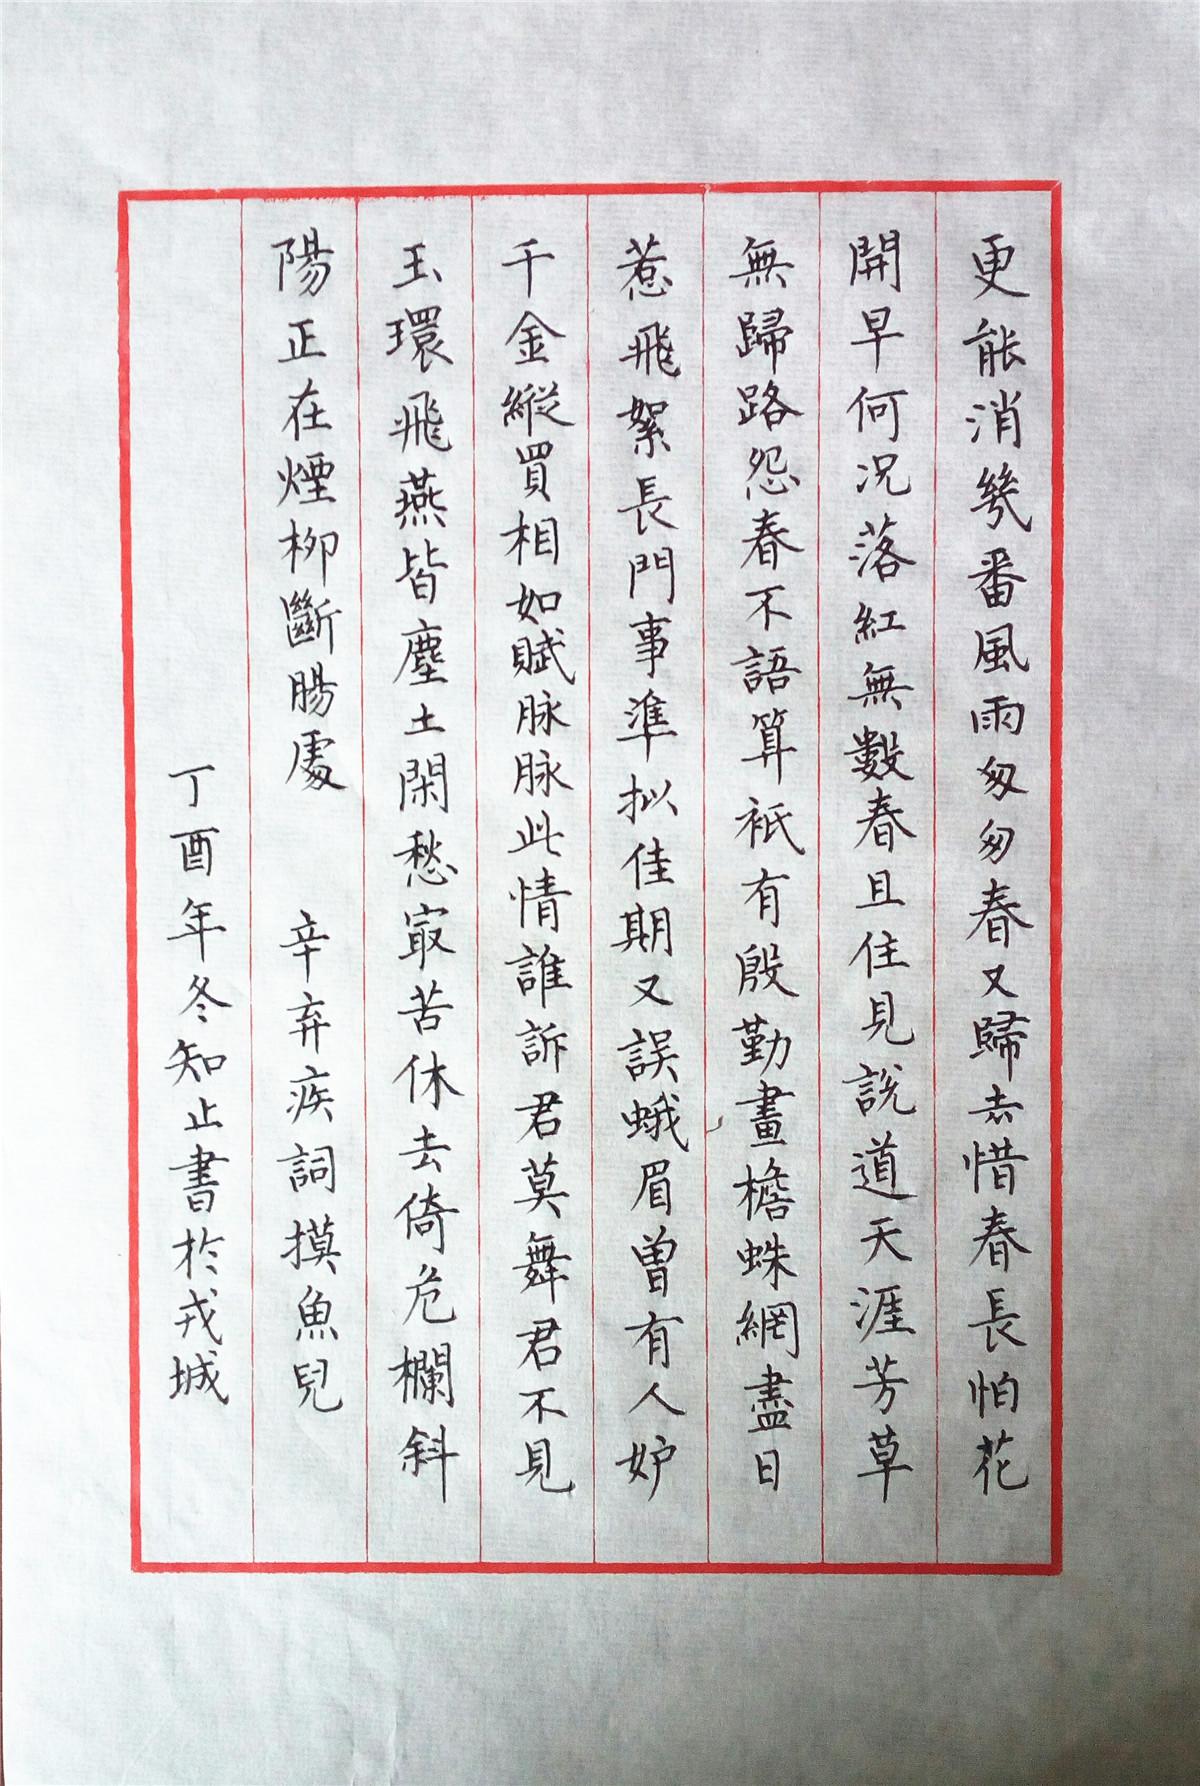 更能消幾番風雨匆匆春又歸去惜春長怕花
開早何況落紅無數春且住見說道天涯芳草
無歸路怨春不語算祇有殷勤畫檐蛛網盡日
惹飛絮長門事準拟佳期又誤蛾眉曾有人妒
千金縱買相如賦脉脉此情誰訴君莫舞君不見
玉環飛燕皆塵土閑愁最苦休去倚危欄斜
陽正在煙柳斷腸處 辛弃疾詞摸魚兒
丁酉年冬知止書於戎城